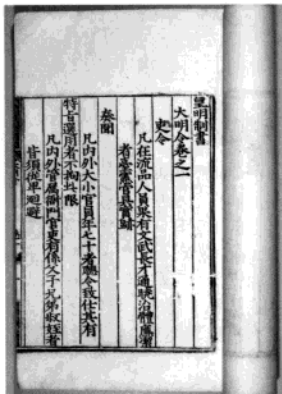 皇明制書
大明令卷之一
吏令
凡在流品人員果有文武長才通曉治體廉潔
者憲臺官具實跡
奏聞
凡内外大小官員年七十者聽令致仕其有
特旨選用者不拘此限
凡内外管屬衙門官吏有係父子兄弟叔姪者
皆須從卑迴避